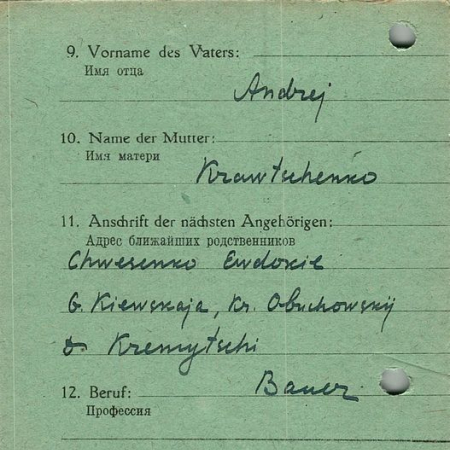 9. Vorname des Vaters:
Имя отца
Andrej
10. Name der Mutter:
Имя матери
Krawtschenko
11. Anschrift der nächsten Angehörigen:
Адрес ближайших родственников
Chwesenko Ewdokie
G. Kiewskaja, Kr. Obuchowskij
D. Kremytschi
12. Beruf: Bauer
Профессия